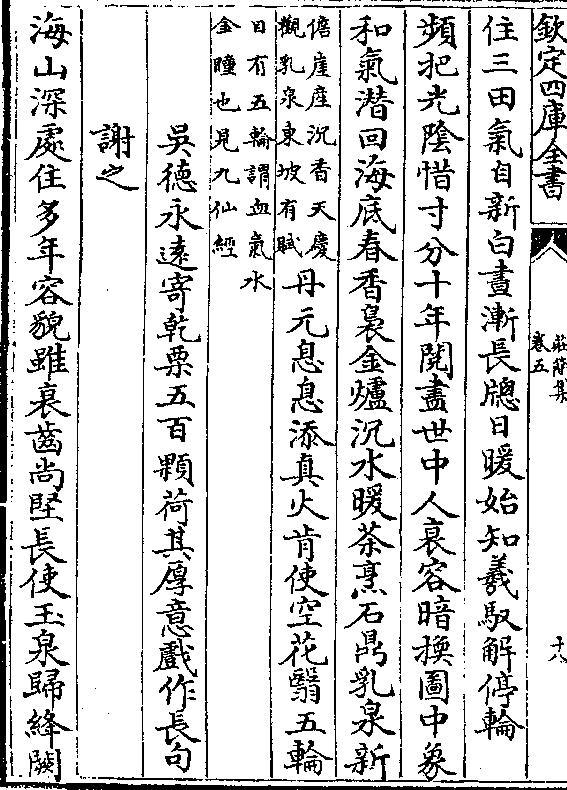 欽定四庫全書
莊簡集
卷五
十八
住三田氣自新白晝漸長牕日暖始知羲馭解停輪
頻把光陰惜寸分十年閱盡世中人衰容暗換圖中象
和氣潜回海底春香裊金爐沉水暖茶烹石鼎乳泉新
儋崖産沉香天慶
觀乳泉東坡有賦
丹元息息添真火肯使空花翳五輪
日有五輪謂血氣水
金瞳也見九仙經
吳德永遠寄乾栗五百顆荷其厚意戲作長句
謝之
海山深處住多年容貌雖衰齒尚堅長使玉泉歸絳闕